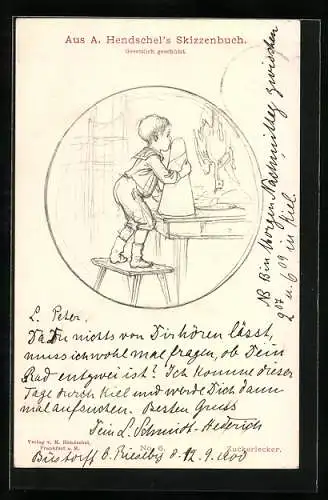 Aus A. Hendschel's Skizzenbuch.
Gesetzlich geschützt.
NB Bin Morgen Nachmittag zwischen
2 07 u. 6 09 in Kiel.
L. Peter.
Da Du nichts von Dir hören lässt,
muss ich wohl mal fragen, ob Dein
Rad entzwei ist! Ich komme dieser
Tage durch Kiel und werde Dich dann
mal aufsuchen. Besten Gruss
Dein L. Schmidt-
Verlag v. M. Hendschel,
Frankfurt a. M.
No. 6.
Zuckerlecker.
Büstorf b. Rieseby 12.9.1900